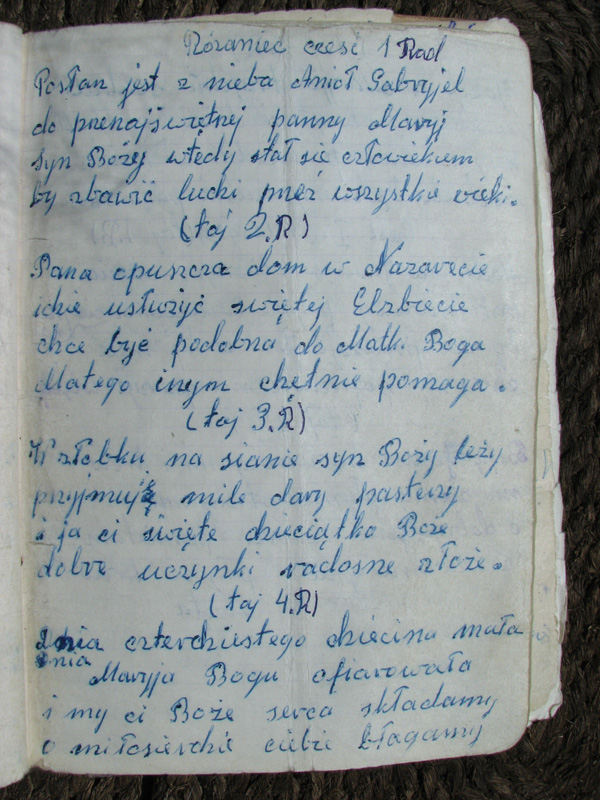 Różaniec cześć 1 Rad
Posłan jest z nieba Anioł Gabryjel
do prenajświętnej panny Maryj
syn Bożej wtedy stał się człowiekem
by zbawić lucki przez wszystkie wieki.
(taj 2.R)
Pana opuszcza dom w Nazarecie
idzie usłużyć świętej Elzbiecie
chce być podobna do Matk. Boga
dlatego inym chętnie pomaga.
(taj 3.R)
W złobku na sianie syn Boży leży
przyjmuję mile dary pasterzy
i ja ci święte dzieciątko Boże
dobre uczynki radosne złoże.
(taj 4.R)
dnia czterdziestego dziecina mała
Maryja Bogu ofiarowała
i my ci Boże serca składamy
o miłosierdzie ciebie błagamy